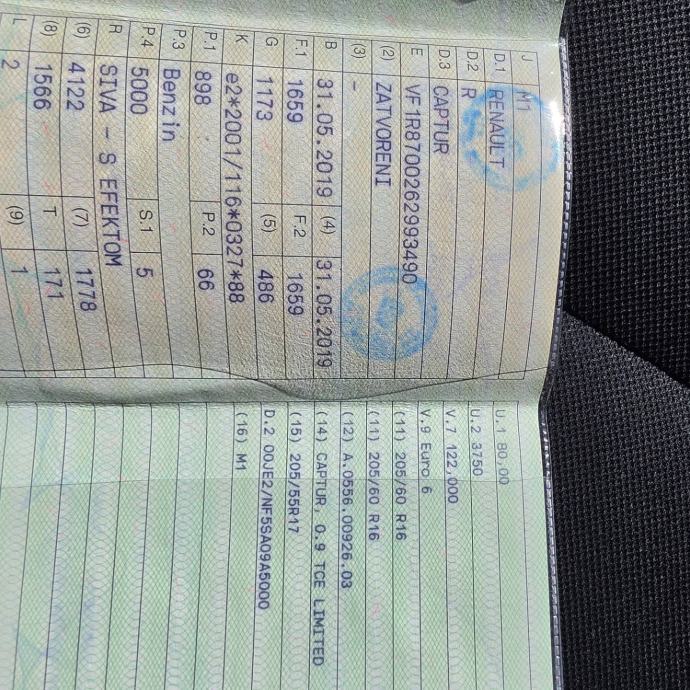 J M1
D.1 RENAULT
D.2 R
D.3 CAPTUR
E VF1R8700262993490
(2) ZATVORENI
(3) -
B 31.05.2019 (4) 31.05.2019
F.1 1659 F.2 1659
G 1173 (5) 486
K e2*2001/116*0327*88
P.1 898 P.2 66
P.3 Benzin
P.4 5000 S.1 5
R SIVA - S EFEKTOM
(6) 4122 (7) 1778
(8) 1566 T 171
L 2 (9) 1
U.1 80,00
U.2 3750
V.7 122,000
V.9 Euro 6
(11) 205/60 R16
(11) 205/60 R16
(12) A.0556.00926.03
(14) CAPTUR, 0.9 TCE LIMITED
(15) 205/55R17
D.2 00JE2/NF5SA09A5000
(16) M1